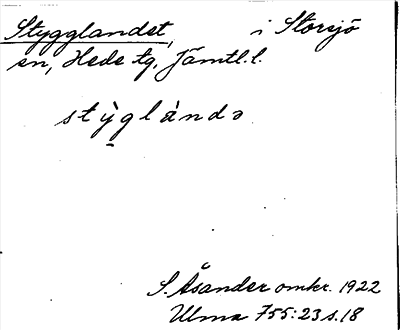 Stygglandet, i Storsjö
sn, Hede tg, Jämtl.l.
stỳ̱glàndə
S. Åsander omkr. 1922
Ulma 755:23 s.18